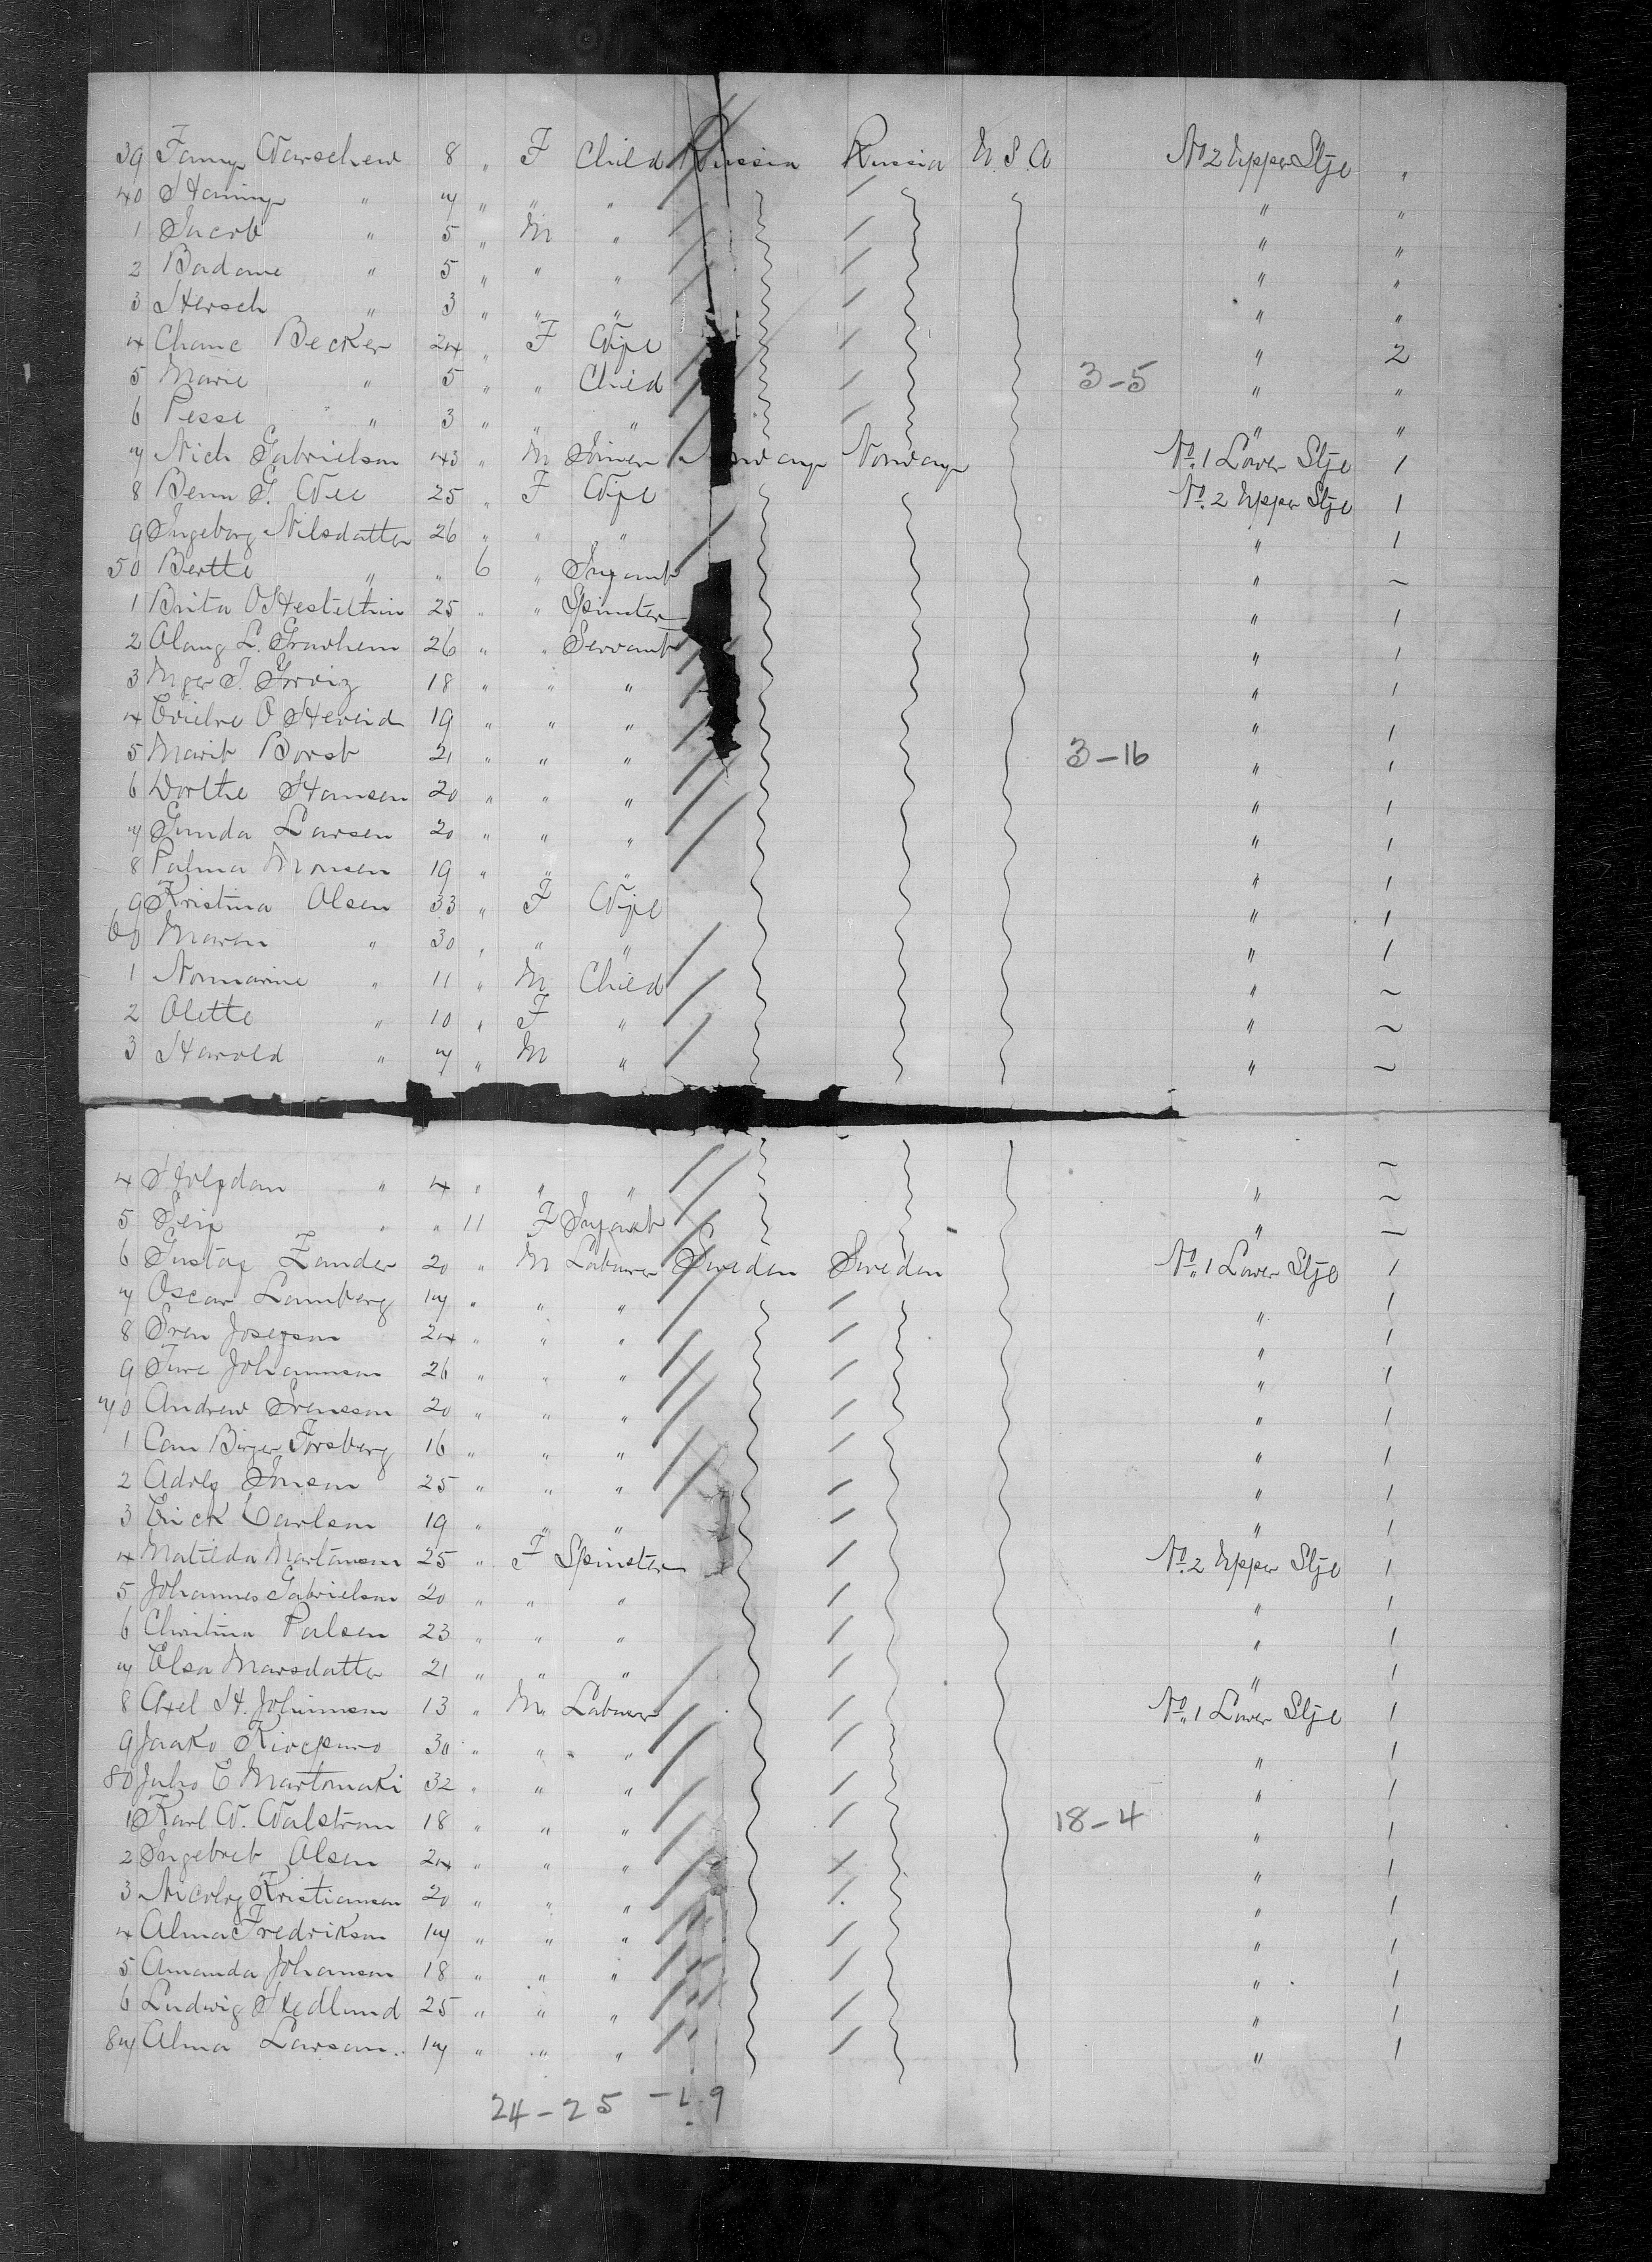 39 Fanny Warschew 8 " F Child Russia Russia U.S.A No 2 Upper Stge "
40 Hanny " 7 " " " " "
1 Jacob " 5 " M " " "
2 Badane " 5 " " " " "
3 Hersch " 3 " " " " "
4 Chane Becker 24 " F Wife " 2
5 Marie " 5 " " Child 3-5 " "
6 Pesse " 3 " " " " "
7 Nich Gabrielson 43 " M Joiner Norway Norway No. 1 Lower Stge 1
8 Bern G. Wee 25 " F Wife No. 2 Upper Stge 1
9 Ingeborg Nilsdatter 26 " " " " 1
50 Berthe " " 6 " Infant " ~
1 Brita O 25 " " Spinster " 1
2 L. 26 " " Servant " 1
3 18 " " " " 1
4 O 19 " " " " 1
5 Marit Borst 21 " " " 3-16 " 1
6 Dorthe Hansen 20 " " " " 1
7 Gunda Larsen 20 " " " " 1
8 Palma Monsen 19 " " " " 1
9 Kristina Olsen 33 " F Wife " 1
60 Maren " 30 " " " " 1
1 Normarine " 11 " M Child " ~
2 Olette " 10 " F " " ~
3 Harold " 7 " M " " ~
4 " 4 " " " " ~
5 " " 11 F Infant " ~
6 Gustaf Zander 20 " M Labourer Sweden Sweden No. 1 Lower Stge 1
7 Oscar Lamberg 17 " " " " 1
8 Sven Josefson 24 " " " " 1
9 Ture Johannson 26 " " " " 1
70 Andrew Svensson 20 " " " " 1
1 Carl Birger Forsberg 16 " " " " 1
2 Adolf Jonson 25 " " " " 1
3 Erick Carlson 19 " " " " 1
4 Matilda Martanson 25 " F Spinster No. 2 Upper Stge 1
5 Johannes Gabrielson 20 " " " " 1
6 Christina Palsen 23 " " " " 1
7 Elsa Marsdatter 21 " " " " 1
8 Axel H. Johannson 13 " M. Labourer No. 1 Lower Stge 1
9 Jaako 30 " " " " 1
80 Juho E Martomaki 32 " " " " 1
1 Karl W. Walstrom 18 " " " 18-4 " 1
2 Ingebret Olsen 24 " " " " 1
3 Nicolay Kristianson 20 " " " " 1
4 Alma Fredrikson 17 " " " " 1
5 Amanda Johanson 18 " " " " 1
6 Ludwig Hedlund 25 " " " " 1
87 Alma Larson. 17 " " " " 1
24-25